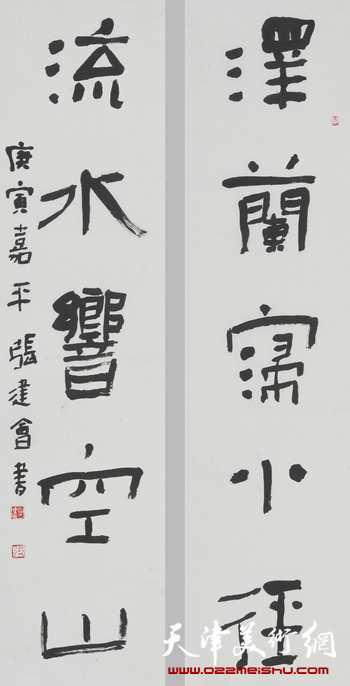 澤蘭小徑
流水響空山
庚寅嘉平張建會書
天津美術網
www.022meishu.com